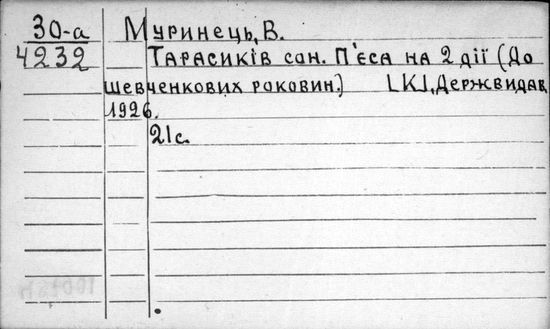 30-а Муринець, В.
4232 Тарасиків сон. П'єса на 2 дії (До
шевченкових роковин.) [К], Держвидав,
1926.
21с.